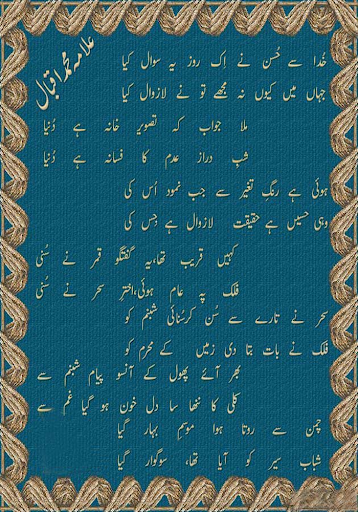 علامہ محمد اقبال
خدا سے حُسن نے اِک روز یہ سوال کیا
جہاں میں کیوں نہ مجھے تو نے لازوال کیا
ملا جواب کہ تصویر خانہ ہے دُنیا
شبِ دراز عدم کا فسانہ ہے دُنیا
ہوئی ہے رنگِ تغیر سے جب نمود اُس کی
وہی حسیں ہے حقیقت لازوال ہے جس کی
کہیں قریب تھا،یہ گفتگو قمر نے سُنی
فلک پہ عام ہوئی،اخترِ سحر نے سُنی
سحر نے تارے سے سُن کر سُنائی شبنم کو
فلک نے بات بتا دی زمیں کے محرم کو
بھر آئے پھول کے آنسو پیام شبنم سے
کلی کا ننھا سا دل خون ہو گیا غم سے
چمن سے روتا ہوا موسمِ بہار گیا
شباب سیر کو آیا تھا، سوگوار گیا